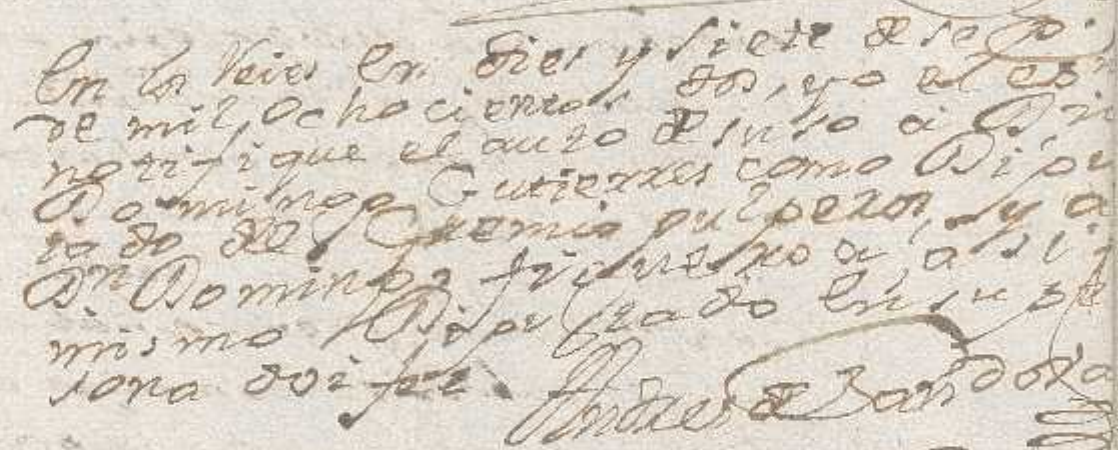 En los Reies en diez y siete de sep.
de mil, ochocientos dos, yo el es
notifique el auto de suso a Dn
Domingo Gutierrez como Dipu
tado del Gremio pulperos, y a
Dn Domingo a asi
mismo Diputado en su per
sona doi fee
Andres de Sandobal